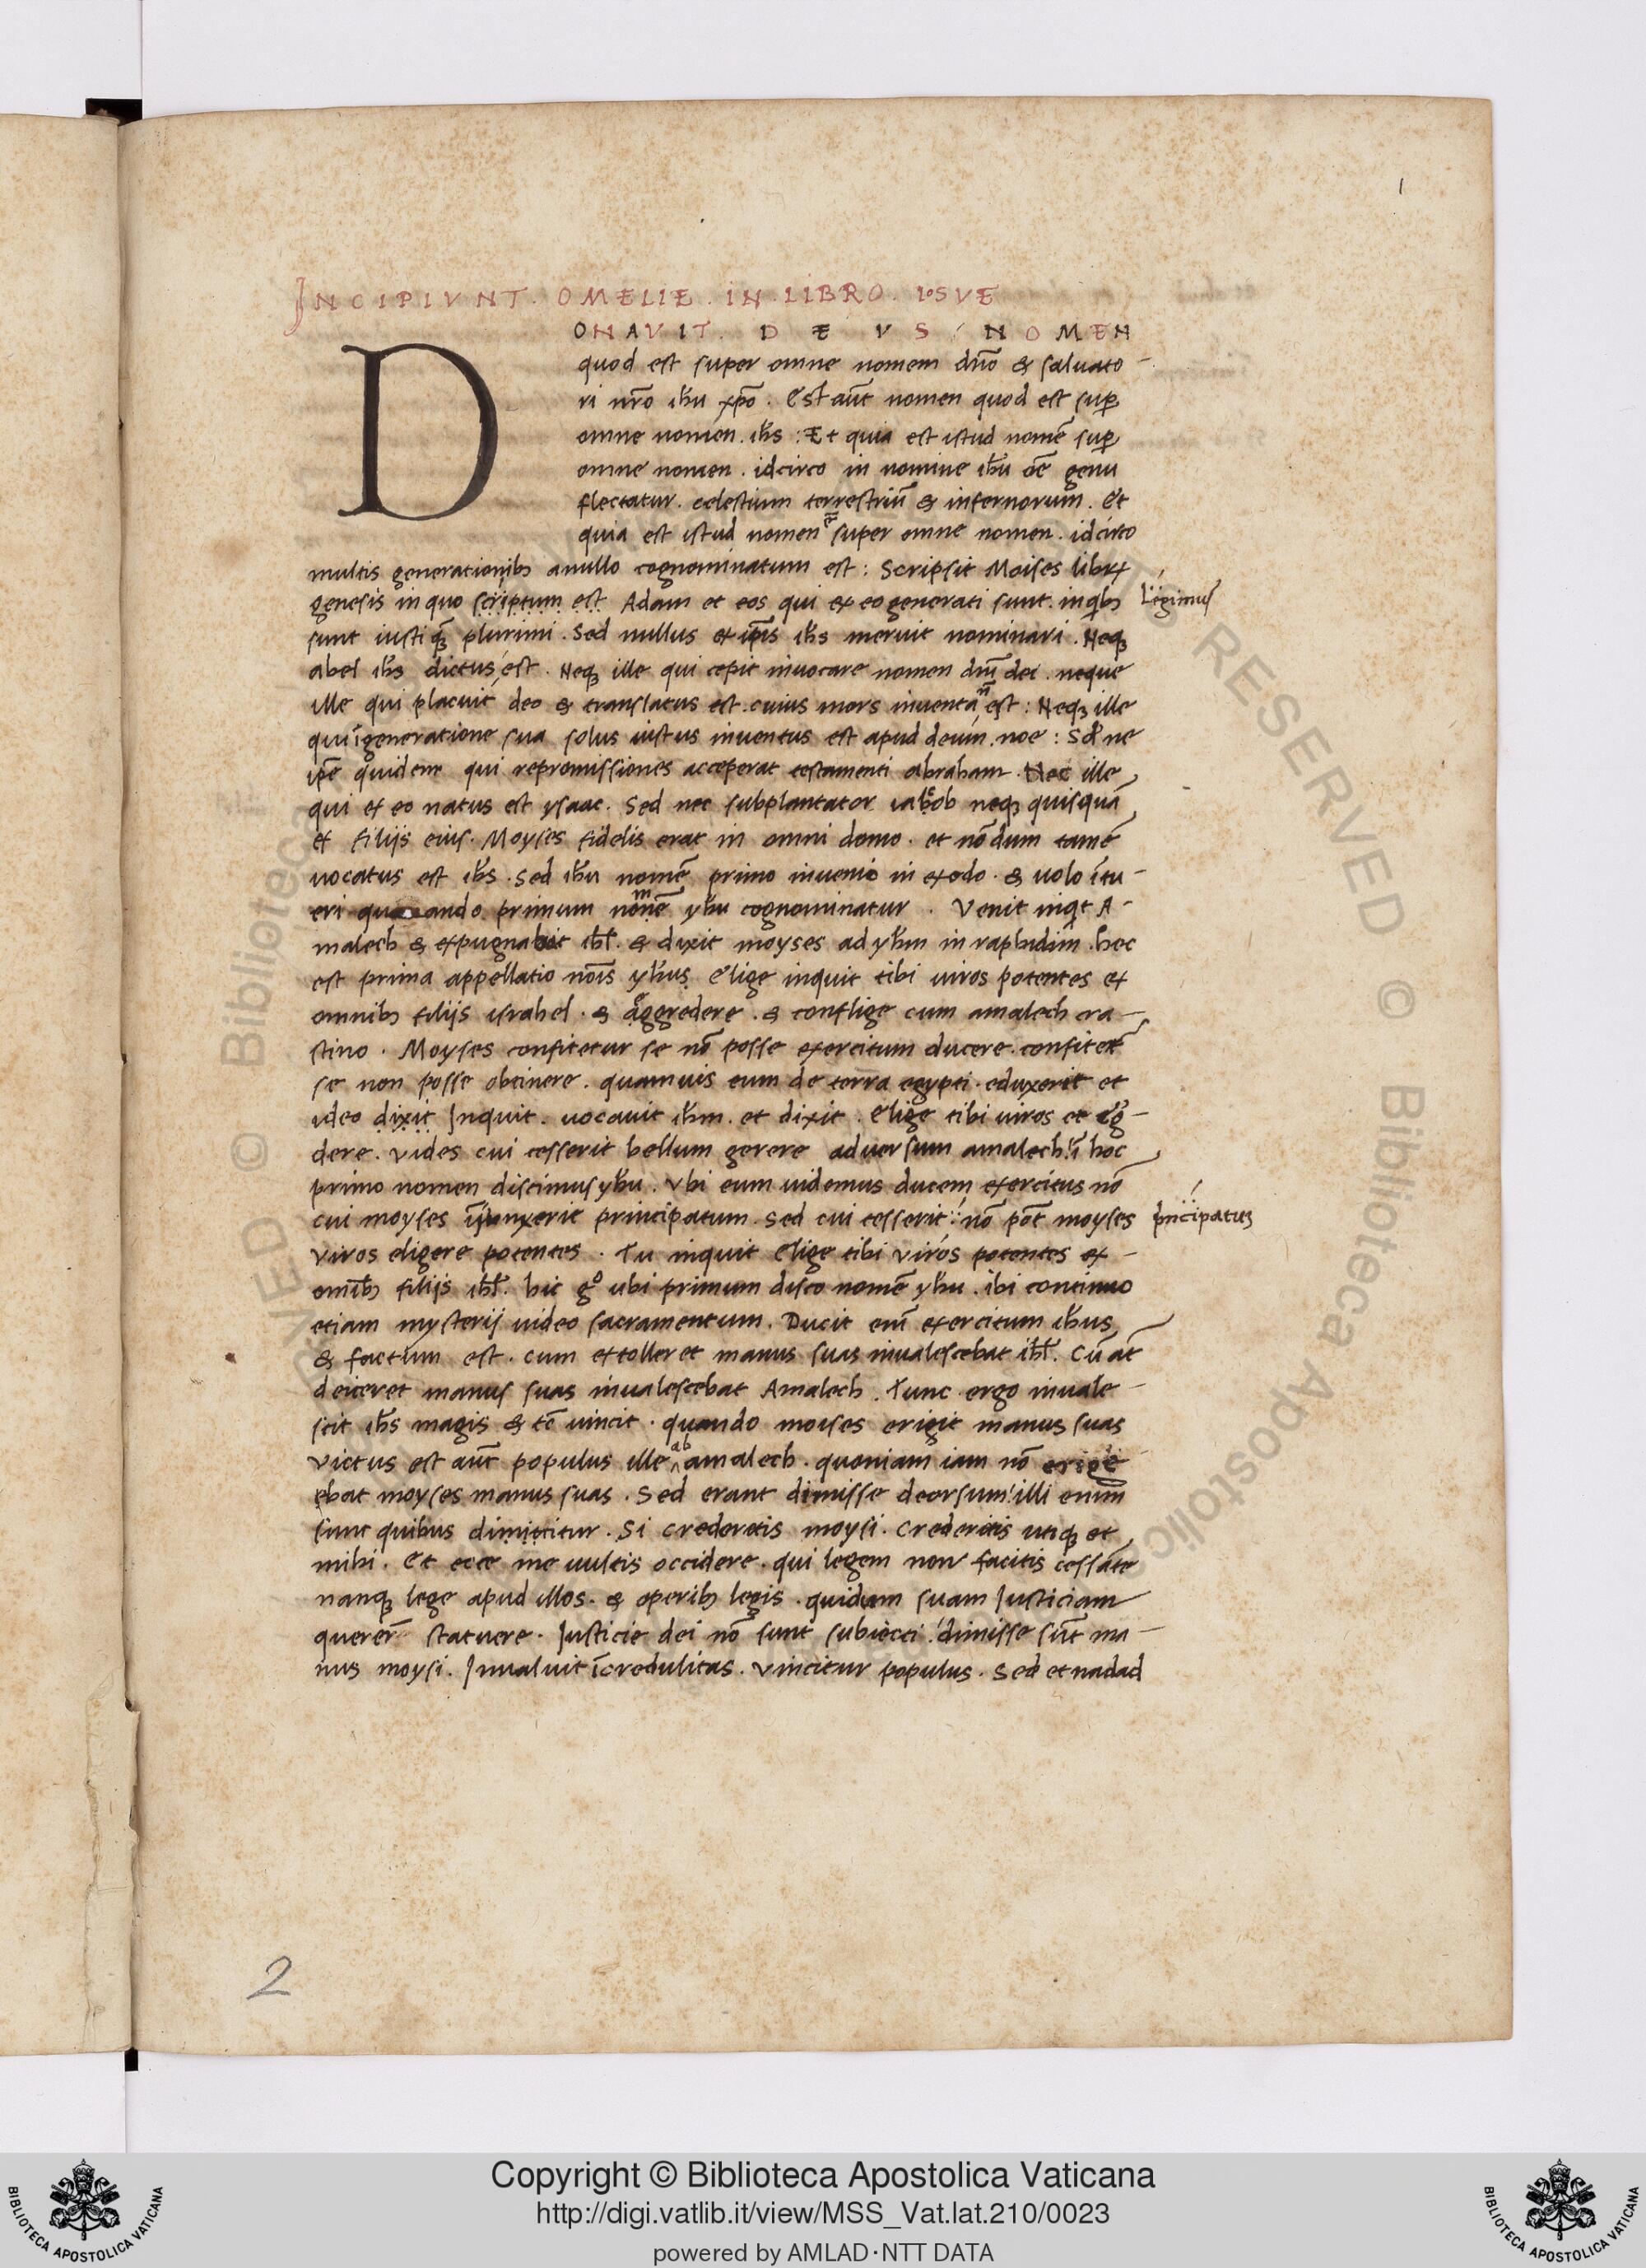 1
INCIPIVNT. OMELIE. IN. LIBRO. IOSVE
DONAVIT. DEVS. NOMEN
quod est super omne nomem dño & saluato-
ri nr̃o ih̃u xp̃o. Est aũt nomen quod est sup̱
omne nomen. ih̃s: Et quia est istud nomẽ sup̱
omne nomen. idcirco in nomine ih̃u oẽ genu
flectatur. celestium terrestriũ & infernorum. Et
quia est istud nomen super omne nomen. idcirco
multis generationibꝫ anullo cognominatum est: Scripsit Moises libꝝ
genesis in quo scriptum est Adam et eos qui ex eo generati sunt. in qibꝫ Legimus
sunt iusti qꝫ plurimi. Sed nullus ex ip̃is ih̃s meruit nominari. Neqꝫ
abel ih̃s dictus est. Neqꝫ ille qui cepit inuocare nomen dñi dei. neque
ille qui placuit deo & translatus est. cuius mors inuenta ñ est: Neqꝫ ille
qui ĩgeneratione sua solus iustus inuentus est apud deum. noe: Sꝫ ne
ip̃e quidem qui repromissiones acceperat testamenti abraham. Nec ille
qui ex eo natus est ysaac. Sed nec subplantator iacob neqꝫ quisquã
ex filijs eius. Moyses fidelis erat in omni domo. et nõdum tamẽ
uocatus est ih̃s. Sed ih̃u nomẽ primo inuenio in exodo. & uolo ĩtu-
eri quando primum nomẽ yh̃u cognominatur. Venit inqit A-
malech & expugnabat ih̃l. & dixit moyses ad yh̃m in raphidim. hec
est prima appellatio nõis yh̃us Elige inquit tibi uiros potentes ex
omnibꝫ filijs israhel. & aggredere. & conflige cum amalech cra-
stino. Moyses confitetur se nõ posse exercitum ducere. confitet̃
se non posse obtinere. quamuis eum de terra egypti. eduxerit et
ideo dixit Inquit. uocauit ih̃m. et dixit. Elige tibi uiros et eg̾-
dere. Vides cui cesserit bellum gerere aduersum amalech! ĩ hoc
primo nomen discimus yh̃u. Vbi eum uidemus ducem exercitus nõ
cui moyses iniunxerit principatum. Sed cui cesserit: nõ pot̃ moyses principatus
Viros eligere potentes. Tu inquit Elige tibi viros potentes ex-
omĩbꝫ filijs ih̃l. hic gº ubi primum disco nomẽ yh̃u. ibi continuo
etiam mysterij uideo sacramentum. Ducit eni᷈ exercitum ih̃us
& factum est. cum extolleret manus suas inualescebat ih̃l. Cũ at̃
deiceret manus suas inualescebat Amalech. Tunc ergo inuale-
scit ih̃s magis & tẽ uincit. quando moises erigit manus suas
Victus est aũt populus ille ab amalech. quoniam iam nõ erige
ebat moyses manus suas. Sed erant dimisse deorsum! illi enim
sunt quibus dimictitur. Si crederetis moysi. Crederitis utiqꝫ et
mihi. Et ecce me uultis occidere. qui legem non facitis cessãte
nanqꝫ lege apud illos. & operibꝫ legis. quidam suam Justiciam
querer̃ statuere. Justicie dei nõ sunt subiecti! dimisse sũt ma-
nus moysi. Inualuit ĩcredulitas. Vincitur populus. Sed et nadad
2
Copyright © Biblioteca Apostolica Vaticana
http://digi.vatlib.it/view/MSS_Vat.lat.210/0023
powered by AMLAD·NTT DATA
BIBLIOTECA APOSTOLICA VATICANA
BIBLIOTECA APOSTOLICA VATICANA